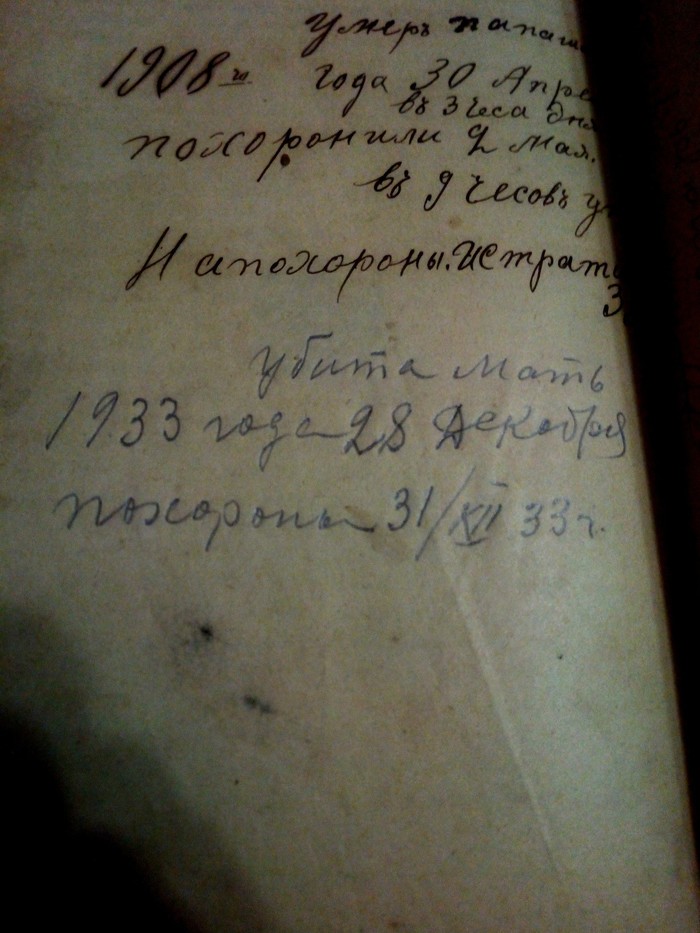 умеръ папаш
1908 го года 30 Апре
въ 3 чеса дня
похоронили 2 мая.
въ 9 чесовъ у
На похороны. Истрати
3
убита мать
1933 года 28 Декабря
похороны 31/XII 33 г.